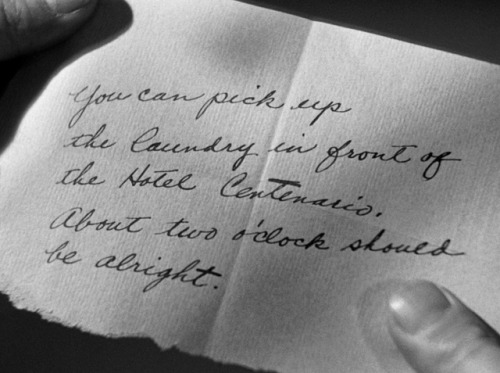 You can pick up
the laundry in front of
the Hotel Centenario.
About two o'clock should
be alright.